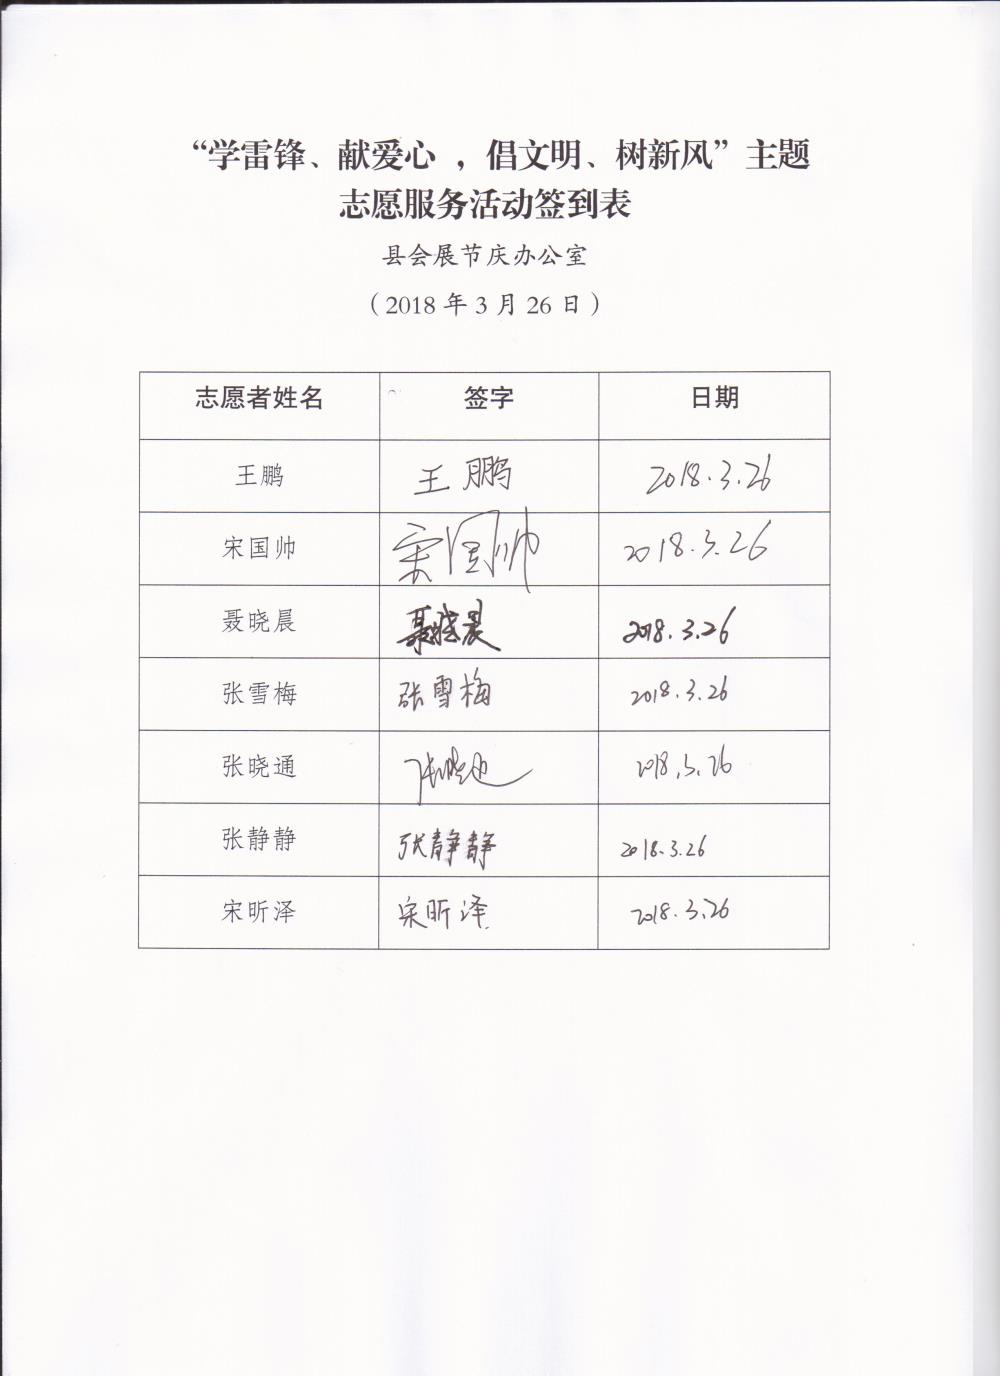 “学雷锋、献爱心 ，倡文明、树新风”主题
志愿服务活动签到表
县会展节庆办公室
（2018 年 3 月 26 日）
志愿者姓名 签字 日期
王鹏 王鹏 2018.3.26
宋国帅 宋国帅 2018.3.26
聂晓晨 聂晓晨 2018.3.26
张雪梅 张雪梅 2018.3.26
张晓通 张晓通 2018.3.26
张静静 张静静 2018.3.26
宋昕泽 宋昕泽 2018.3.26